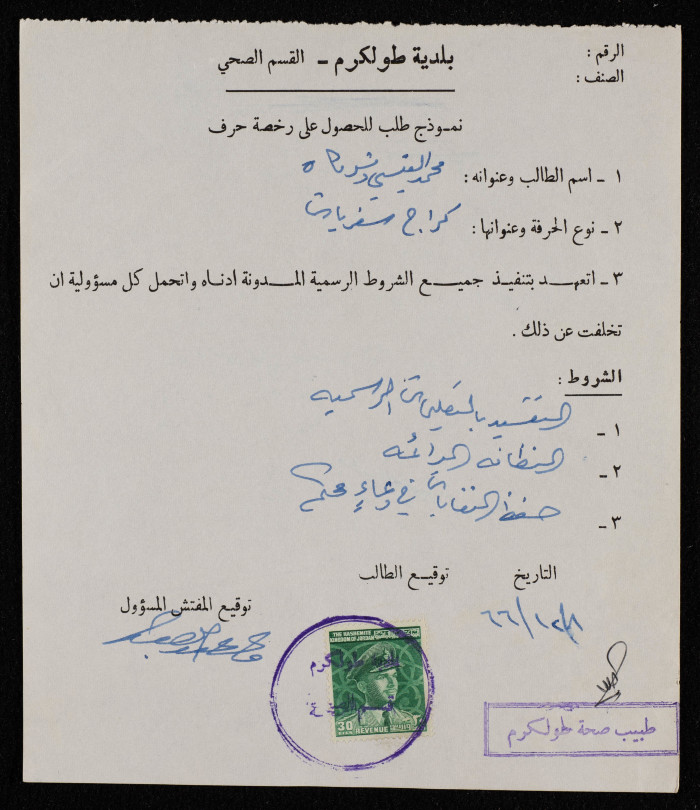 الرقم :
الصنف :
بلدية طولكرم – القسم الصحي
نمـوذج طلب للحصول على رخصة حرف
١ – اسم الطالب وعنوانه : محمد القيسي وشركاه
٢ – نوع الحرفة وعنوانها : كراج سفريات
٣ – اتعهـــد بتنفيـذ جميـــع الشروط الرسمية المـــدونة ادناه واتحمل كل مسؤولية ان
تخلفت عن ذلك .
الشروط :
١ – التقيد بالتعليمات الرسميه
٢ – النظافه الدائمه
٣ – حفظ النفايات في وعاء محكم
التاريخ
توقيـع الطالب
توقيع المفتش المسؤول
THE HASHEMITE
KINGDOM OF JORDAN
بلدية طولكرم
قسم الصحة
30
REVENUE
طبيب صحة طولكرم